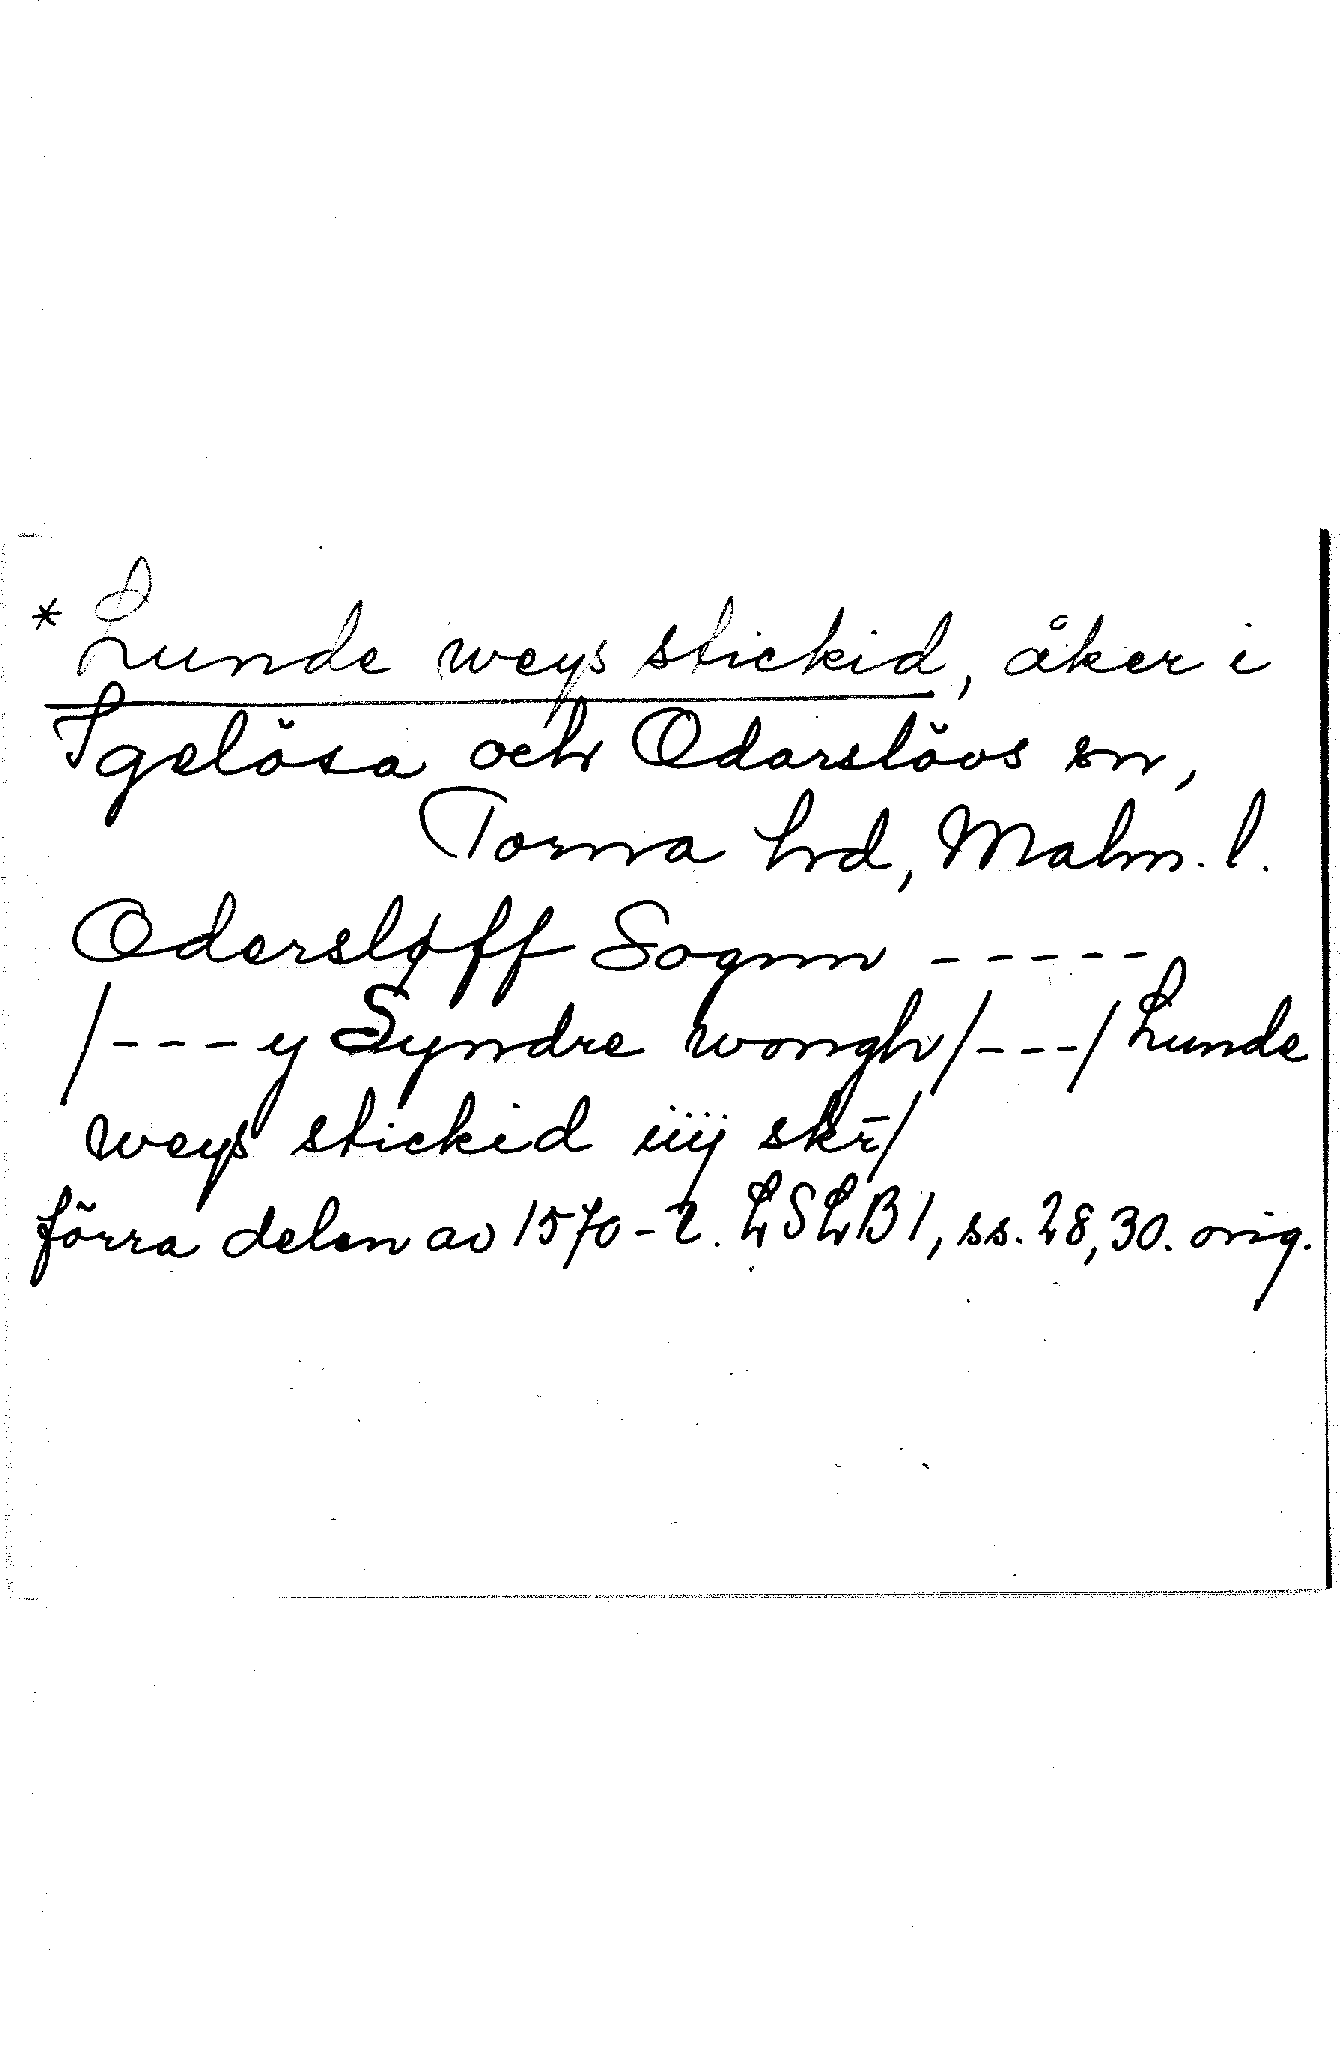 * Lunde weys stickid, åker i
Igelösa och Odarslövs sn,
Torna hrd, Malm. l.
Odersløff Sognn -----
/---y Syndre wongh/---/Lunde
weys stickid iiij skr̄/
förra delen av 1570-t. LSLB1, ss. 28, 30. orig.